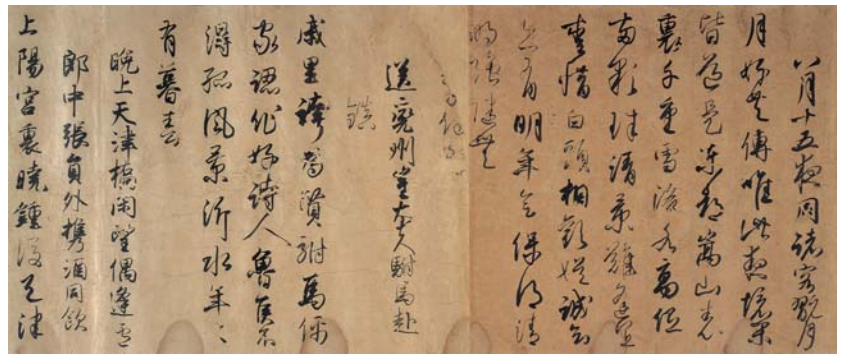 八月十五夜同諸客翫月
月好共傳唯此夜境閑
皆道是東都嵩山表
裏千重雪洛水高低
兩顆珠清景難逢宜
愛惜白頭相勸娛誠知
亦有明年會保得清
明強健無
送兗州崔大夫駙馬赴
鎮
戚里誇為賢駙馬儒
家認作好詩人魯侯不
得孤風景沂水年〻
有暮春
晚上天津橋閑望偶逢盧
郎中張員外攜酒同飲
上陽宮裏曉鐘後天津